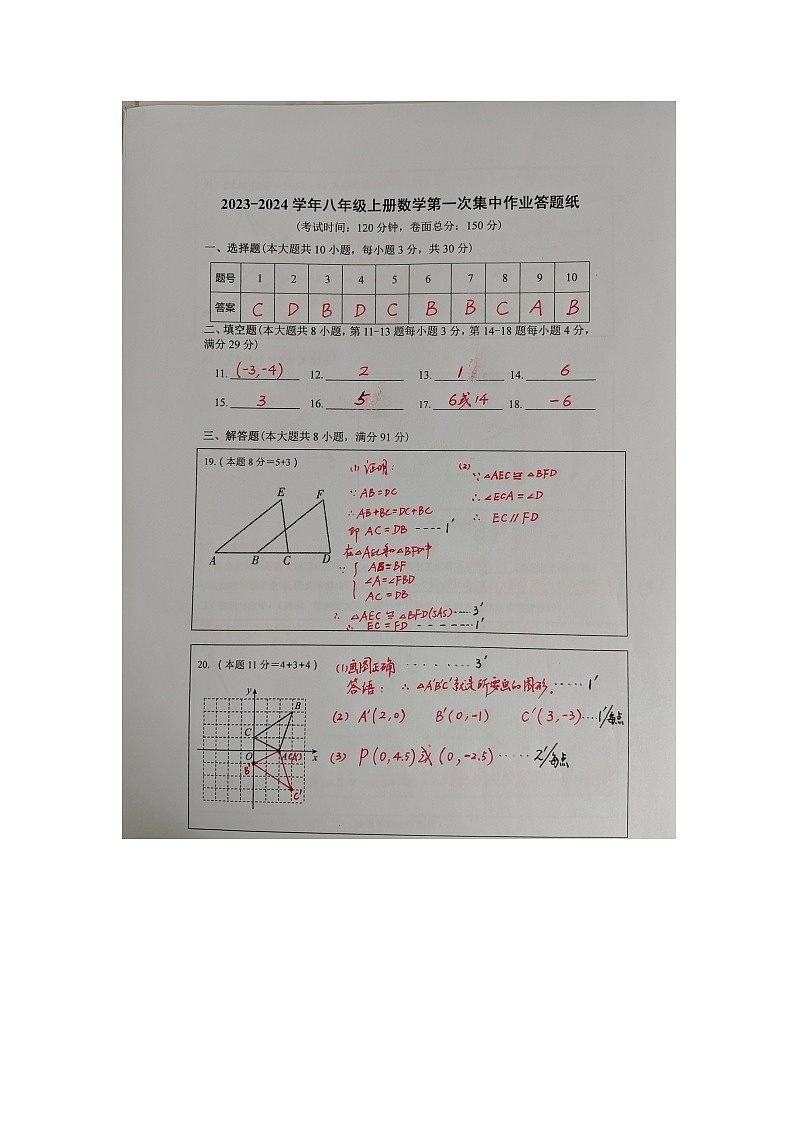 2023-2024学年八年级上册数学第一次集中作业答题纸
(考试时间：120分钟，卷面总分：150分)
一、选择题(本大题共10小题，每小题3分，共30分)
题号 1 2 3 4 5 6 7 8 9 10
答案 C D B D C B B C A B
二、填空题(本大题共8小题，第11-13题每小题3分，第14-18题每小题4分，
满分29分)
11. (-3,-4) 12. 2 13. 1 14. 6
15. 3 16. 5 17. 6或14 18. -6
三、解答题(本大题共8小题，满分91分)
19.(本题8分=5+3)
E F
A B C D
(1) 证明:
∵ AB=DC
∴ AB+BC=DC+BC
即 AC=DB ---- 1'
在△AEC和△BFD中
∵ { AE=BF
∠A=∠FBD
AC=DB
∴ △AEC≌△BFD(SAS)----3'
∴ EC=FD ------1'
(2)
∵ △AEC≌△BFD
∴ ∠ECA=∠D
∴ EC∥FD
20.(本题11分=4+3+4)
y
B
C
O A(A') x
B'
C'
(1)画图正确 ········3'
答语: ∴ △A'B'C'就是所要画的图形.·····1'
(2) A'(2,0) B'(0,-1) C'(3,-3)····1'/每点
(3) P(0,4.5)或(0,-2.5)·····2'/每点